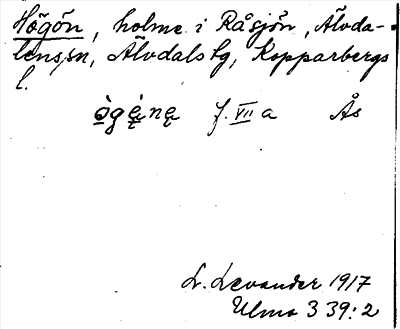 Högön, holme i Råsjön, Älvda-
lens sn, Älvdals tg, Kopparbergs
l.
ògę̀nę f. VII a Ås
L. Levander 1917
Ulma 339:2